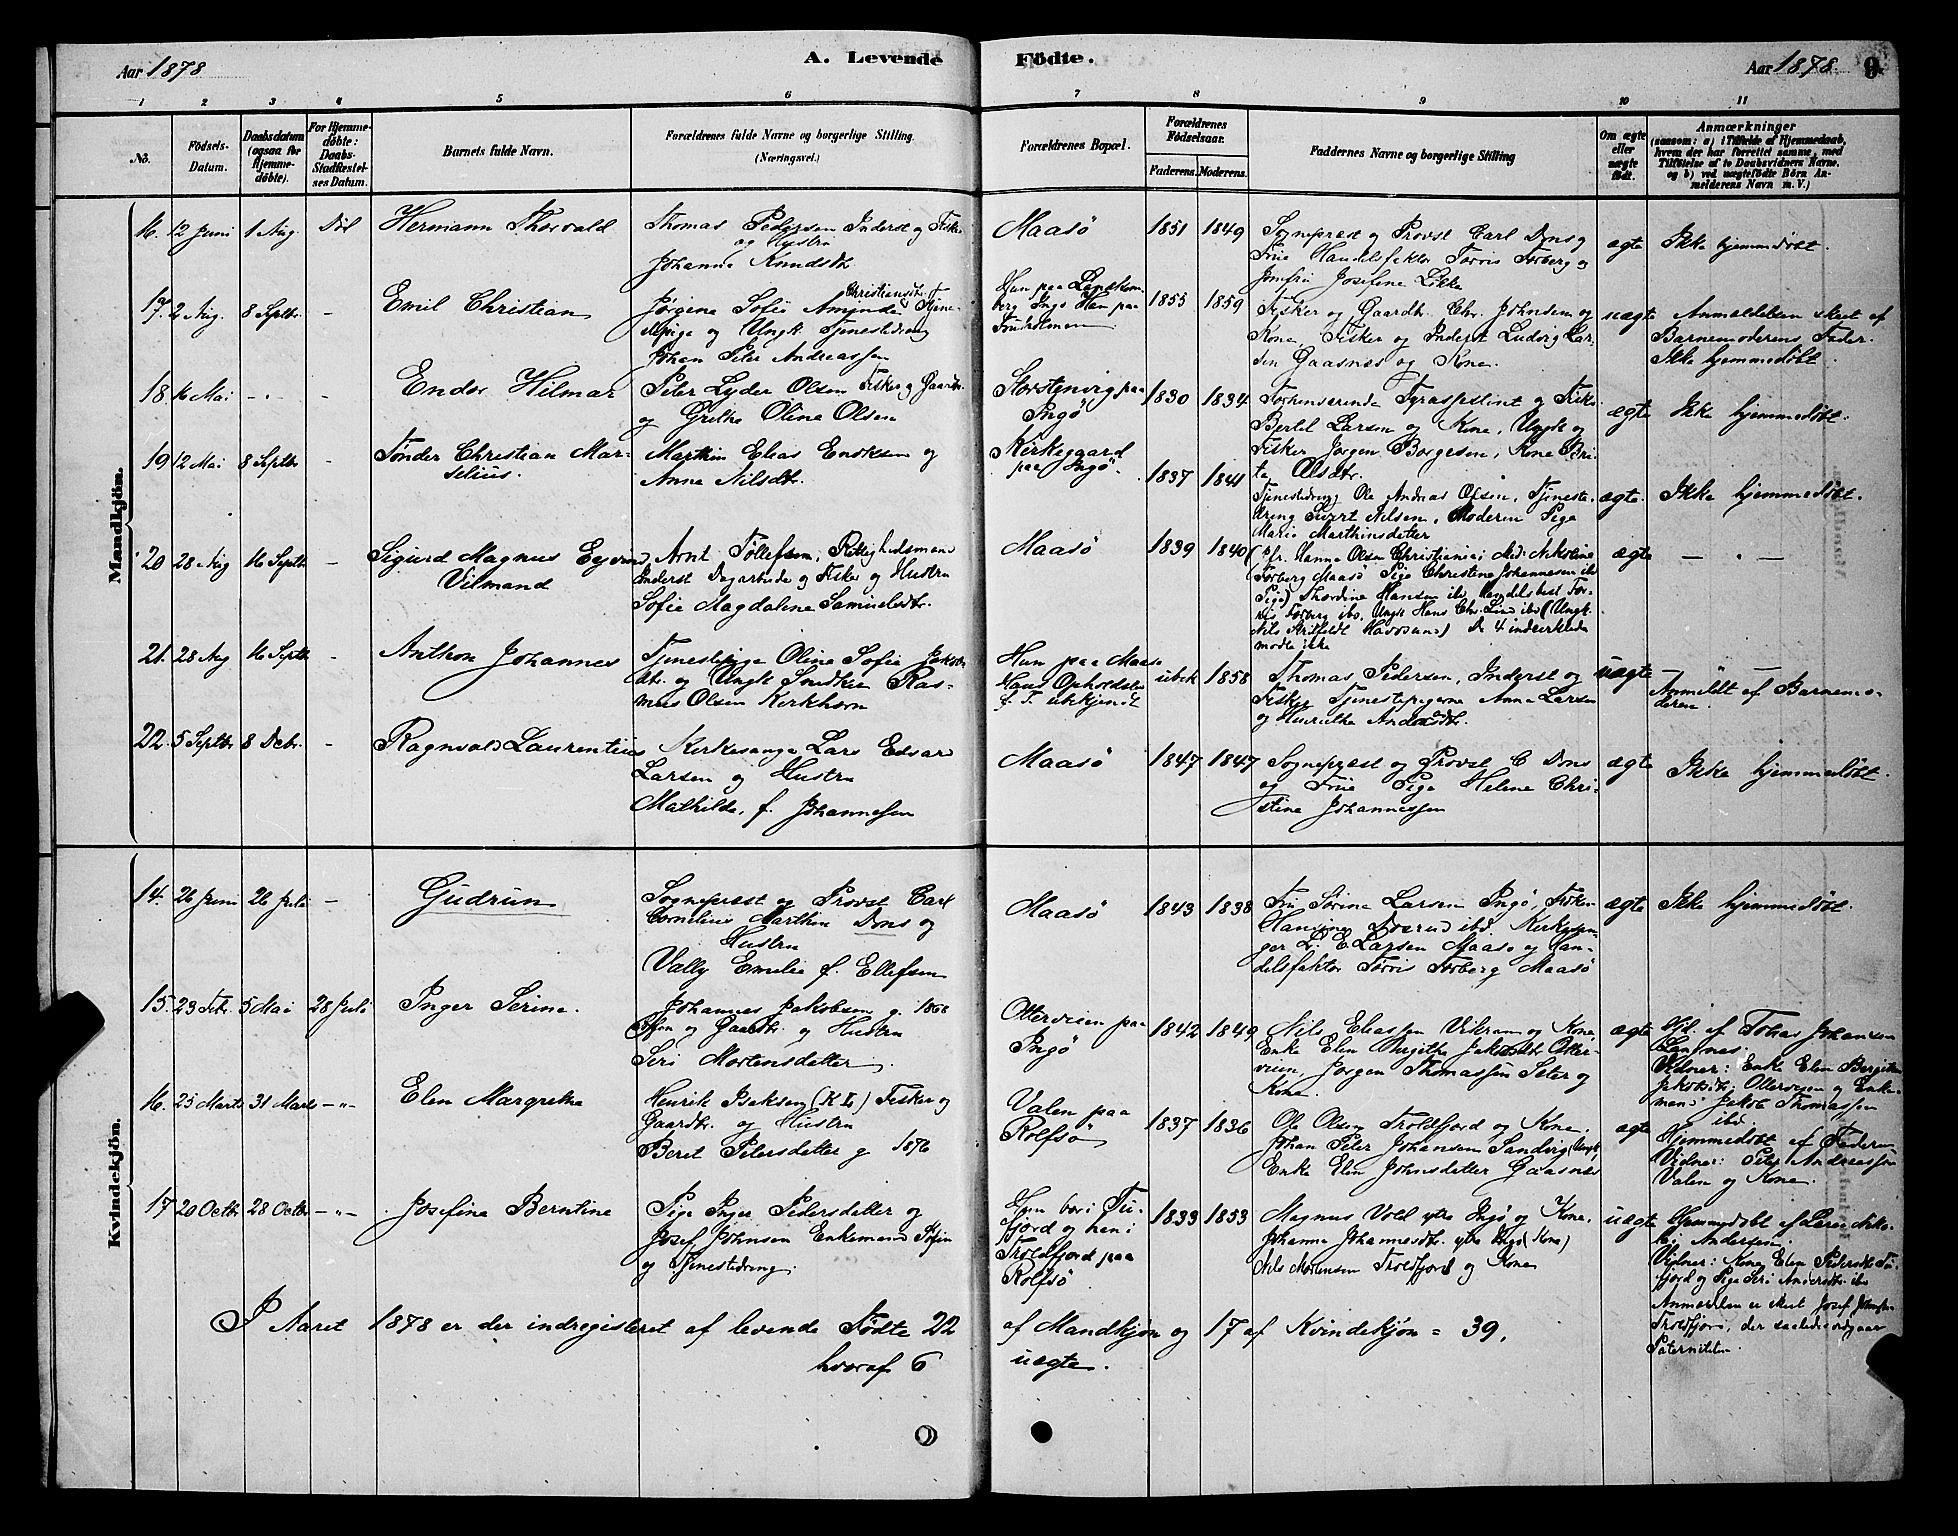 Aar 1878
A. Levende Födte.
Aar 1878.
9.
1 2 3 4 5 6 7 8 9 10 11
No.
Födsels-Datum.
Daabsdatum (ogsaa for Hjemmedöbte).
For Hjemmedöbte: Daabs-Stadfæstelses Datum.
Barnets fulde Navn.
Forældrenes fulde Navne og borgerlige Stilling. (Næringsvei.)
Forældrenes Bopæl.
Forældrenes Fødselsaar.
Faderens. Moderens.
Faddernes Navne og borgerlige Stilling
Om ægte eller uægte født.
Anmærkninger
(saasom: a) i Tilfælde af Hjemmedaab, hvem der har forrettet samme, med Tilföielse af to Daabsvidners Navne, og b) ved uægtefödte Börn Anmelderens Navn m. V.)
Mandkjön.
16. 12 Juni 1 Aug.
Hermann Thorvald
Thomas Pedersen Inderst og Fisker
og Hustru
Johanna Knudsdtr
Maasö
1851 1849
Sogneprest og Provst Carl Dons og
Frue Handelsfaktor Torris Torberg og
Jomfru Josefine Likke
ægte
Ikke hjemmedöbt.
17. 2 Aug. 8 Septbr. -
Emil Christian
Jörgine Sofie Amynda Christiansdtr. Tjene-
stepige og Ungk. Tjenestedreng
Johan Peter Andreassen
Hun paa
berg Ingö Han paa
1855 1859
Fisker og Gaardbr. Chr. Johnsen og
Kone, Fisker og Inderst Ludvig Lar-
sen Gaasnes og Kone.
uægte
Anmeldelsen skeet af
Barnemoderens Fader.
Ikke hjemmedöbt.
18. 16 Mai - " - -
Endor Hilmar
Peter Lyder Olsen Fisker og Gaardbr.
og Grethe Oline Olsen
paa
Ingö
1830 1834
Forhenværende og Fisker
Bertel Larsen og Kone, Ungk. og
Fisker Jörgen Borgesen, Kone Beri-
te Olsdtr.
ægte
Ikke hjemmedöbt.
19 12 Mai 8 Septbr -
Tönder Christian Mar-
selius.
Marthin Elias Eriksen og
Anna Nilsdtr.
Kirkegaard
paa Ingö.
1837 1841
Tjenestedreng Ole Andreas Olsen, Tjeneste-
dreng Sivert Nilsen, Moderen Pige
Marie Marthinsdatter
ægte.
Ikke hjemmedöbt.
20 28 Aug 16 Septbr -
Sigurd Magnus Eyvind
Vilmand
Arnt Töllefsen, Rettighedsmand
Inderst Dagarbeide og Fisker og Hustru
Sofie Magdalena Samuelsdtr.
Maasö
1839 1840
(Fr. Hanna Olsen Christiania; Mad: Nikoline
(Torberg Maasö Pige Christine Johannesen ibd
Pige) Thordine Hansen ibd, Handelsbest. Tor-
ris Torberg ibd. Ungk. Hans Chr. Lind ibd (Ungk.
Nils Havösund) De 4 indcirklede
mödte ikke
ægte
- " -
21. 28 Aug 16 Septbr -
Anthon Johannes
Tjenestepige Oline Sofie Jakobs-
dtr. og Ungk. Snedker Ras-
mus Olsen Kirkhorn
Hun paa Maasö
Hans Opholdsted
f. T. ubekjendt
ubek 1858
Thomas Pedersen, Inderst og
Fisker Tjenestepigerne Anna Larsen
og Henrikke Andersdtr.
uægte
- " -
Anmeldt af Barnemo-
deren.
22. 5 Septbr 8 Decbr. -
Ragnvald Laurentius
Kirkesanger Lars Edvard
Larsen og Hustru
Mathilde, f. Johannesen
Maasö
1847 1847
Sogneprest og Provst C Dons
og Frue Pige Helene Chri-
stine Johannessen
ægte
Ikke hjemmedöbt.
Kvindekjön.
14. 26 Juni 26 Juli -
Gudrun
Sogneprest og Provst Carl
Cornelius Marthin Dons og
Hustru
Vally Emelie f. Ellefsen
Maasö
1843 1838
Fru Sörine Larsen Ingö, Fröken
Hansine ibd. Kirkesan-
ger L. E. Larsen Maasö og Han-
delsfaktor Torris Torberg Maasö
ægte
Ikke hjemmedöbt.
15. 23 Febr. 5 Mai 28 Juli
Inger Serine.
Johannes Jakobsen g. 1868
og Gaardbr. og Hustru
Seri Mortensdatter
Otterveien paa
Ingö
1842 1849
Nils Eliassen Vikran og Kone
Enke Elen Birgithe Jakobsdtr Otter-
veien, Jörgen Thomassen Seter og
Kone.
ægte
Hjd. af Tobias Johansen
Vidner: Enke Elen Bergithe
Jakobsdtr. Otterveien og Enke-
mand Jakob Thomassen
ibd.
16. 25 Marts 31 Marts - " -
Elen Margrethe
Henrik Isaksen (K L) Fisker og
Gaardbr. og Hustru
Beret Petersdatter g. 1876
Valen paa
Rolfsö
1837 1836
Ole Olsen Troldfjord og Kone.
Johan Peter Johansen Sandvig (Ungk.)
Enke Elen Johnsdatter Gaasnes
ægte
Hjemmedöbt af Faderen
Vidner: Peter Andreassen
Valen og Kone.
17 20 Octbr. 28 Octbr. - " -
Josefine Berntine
Pige Inger Pedersdatter og
Josef Johnsen Enkemand Söfin
og Tjenestedreng.
Hun bor i Tu-
fjord og han i
Troldfjord paa
Rolfsö
1833 1853
Magnus Vold ytre Ingö og Kone,
Johanna Johannesdtr. ytre Ingö (Kone)
Nils Mortensen Troldfjord og Kone
uægte
Hjemmedöbt af Lars Nils-
Andersen.
Vidner: Kone Elen Pedersdtr Tu-
fjord og Pige Seri Andersdtr. ibd
Anmeldelsen er skeet Josef Johnsen
Troldfjord, der saaledes vedgaar
Paterniteten.
I Aaret 1878 er der indregisteret af levende Födte 22
af Mandkjön og 17 af Kvindekjön = 39,
hvoraf 6 uægte.